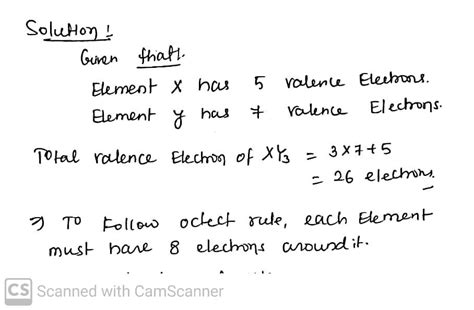 Solution :
Given that.
Element X has 5 valence Electrons.
Element y has 7 valence Electrons.
Total valence Electron of XY3 = 3×7+5
= 26 electrons.
⇒ To Follow octect rule, each Element
must have 8 electrons around it.
CS Scanned with CamScanner